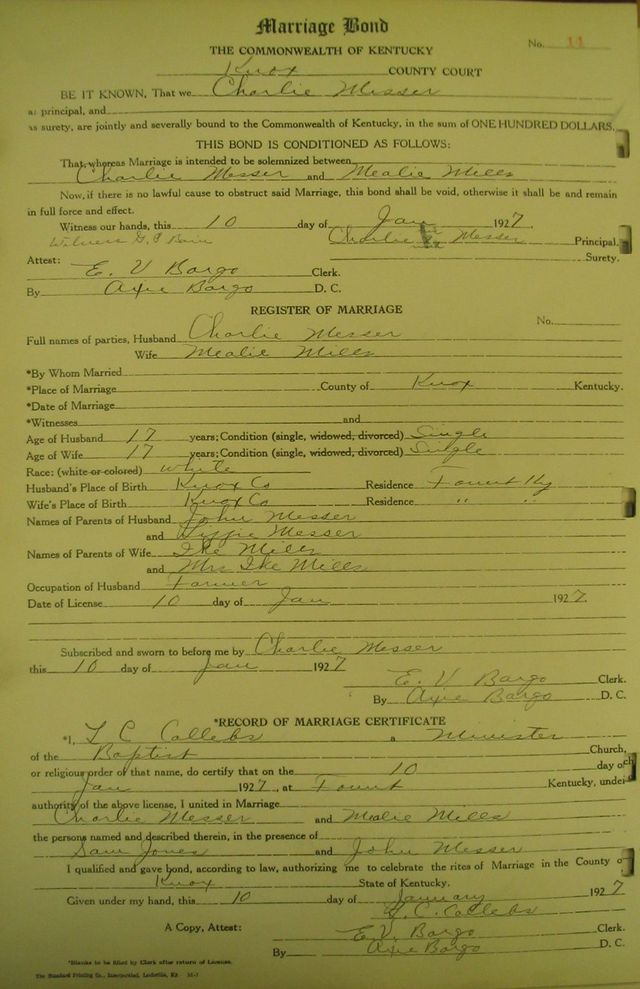 Marriage Bond
No. 11
THE COMMONWEALTH OF KENTUCKY
Knox COUNTY COURT
BE IT KNOWN, That we Charlie Messer
as principal, and
as surety, are jointly and severally bound to the Commonwealth of Kentucky, in the sum of ONE HUNDRED DOLLARS.
THIS BOND IS CONDITIONED AS FOLLOWS:
That, whereas Marriage is intended to be solemnized between
Charlie Messer and Mealie Mills
Now, if there is no lawful cause to obstruct said Marriage, this bond shall be void, otherwise it shall be and remain
in full force and effect.
Witness our hands, this 10 day of Jan 1927.
Witness G. C. Charlie Messer Principal.
Surety.
Attest: E. V Bargo Clerk.
By Axie Bargo D. C.
REGISTER OF MARRIAGE
No.
Full names of parties, Husband Charlie Messer
Wife Mealie Mills
*By Whom Married
*Place of Marriage County of Knox Kentucky.
*Date of Marriage
*Witnesses and
Age of Husband 17 years; Condition (single, widowed, divorced) Single
Age of Wife 17 years; Condition (single, widowed, divorced) Single
Race: (white or colored) white
Husband's Place of Birth Knox Co Residence Fount Ky
Wife's Place of Birth Knox Co Residence " "
Names of Parents of Husband John Messer
and Messer
Names of Parents of Wife Ike Mills
and Mrs Ike Mills
Occupation of Husband Farmer
Date of License 10 day of Jan 1927.
Subscribed and sworn to before me by Charlie Messer
this 10 day of Jan 1927
E. V Bargo Clerk.
By Axie Bargo D. C.
*RECORD OF MARRIAGE CERTIFICATE
*I, L C Collebs a Minister
of the Baptist Church,
or religious order of that name, do certify that on the 10 day of
Jan 1927, at Fount Kentucky, under
authority of the above license, I united in Marriage
Charlie Messer and Mealie Mills
the persons named and described therein, in the presence of
Sam Jones and John Messer
I qualified and gave bond, according to law, authorizing me to celebrate the rites of Marriage in the County of
Knox State of Kentucky.
Given under my hand, this 10 day of January 1927
L. C. Collebs
A Copy, Attest: E. V. Bargo C.
By Axie Bargo D. C.
*Blanks to be filled by Clerk after return of License.
The Standard Printing Co., Incorporated, Louisville, KY